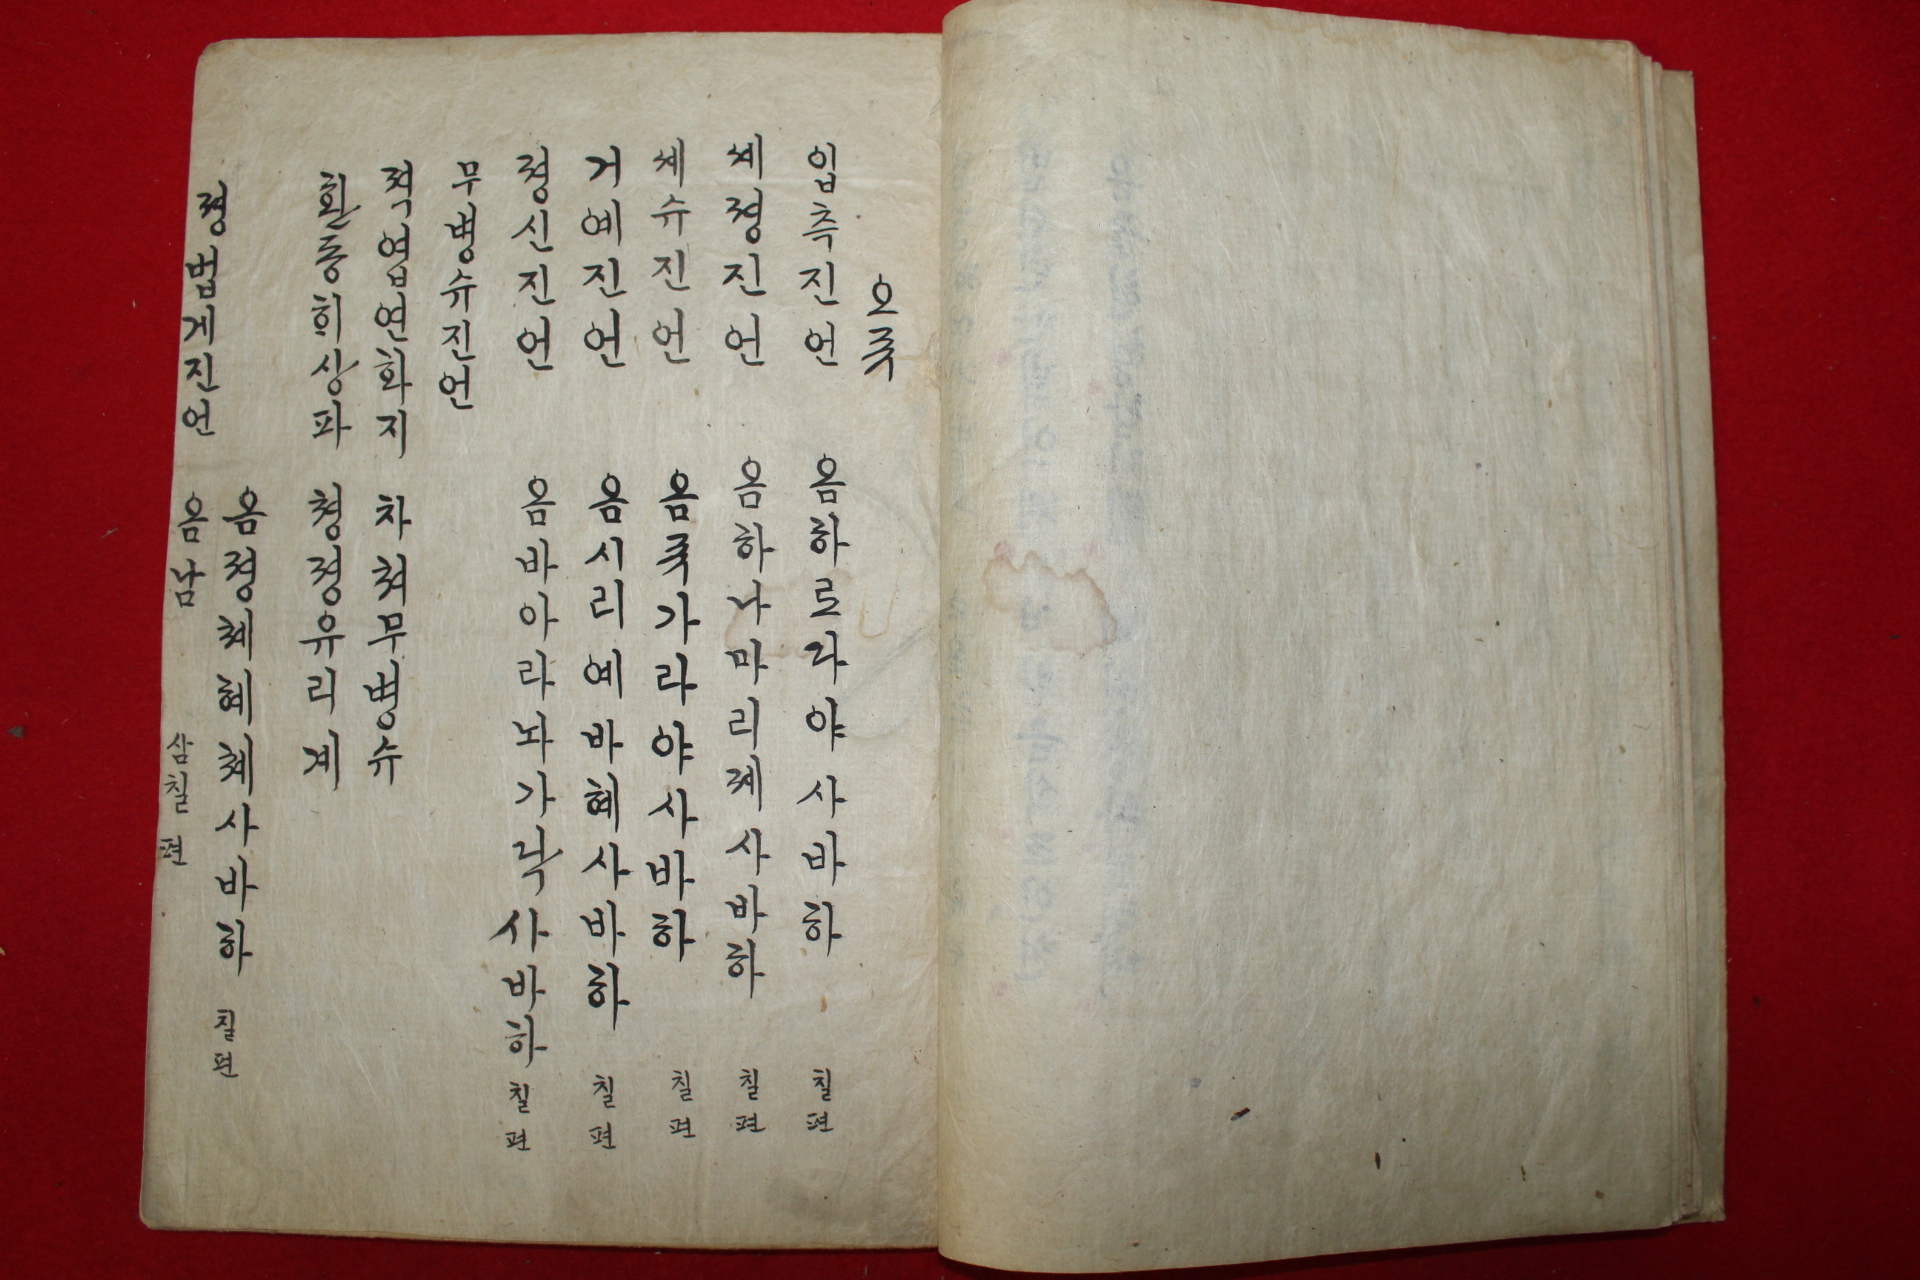 오쥭
입측진언 옴하로라야사바하 칠편
쎼졍진언 옴하나마리졔사바하 칠편
셰슈진언 옴쥭가라야사바하 칠편
거예진언 옴시리예바혜사바하 칠편
졍신진언 옴바아라놔가닥사바하 칠편
무병슈진언
젹엽연화지 차쳐무병슈
환동희상파 쳥졍유리계
옴졍체혜체사바하 칠편
졍법계진언 옴남 삼칠편